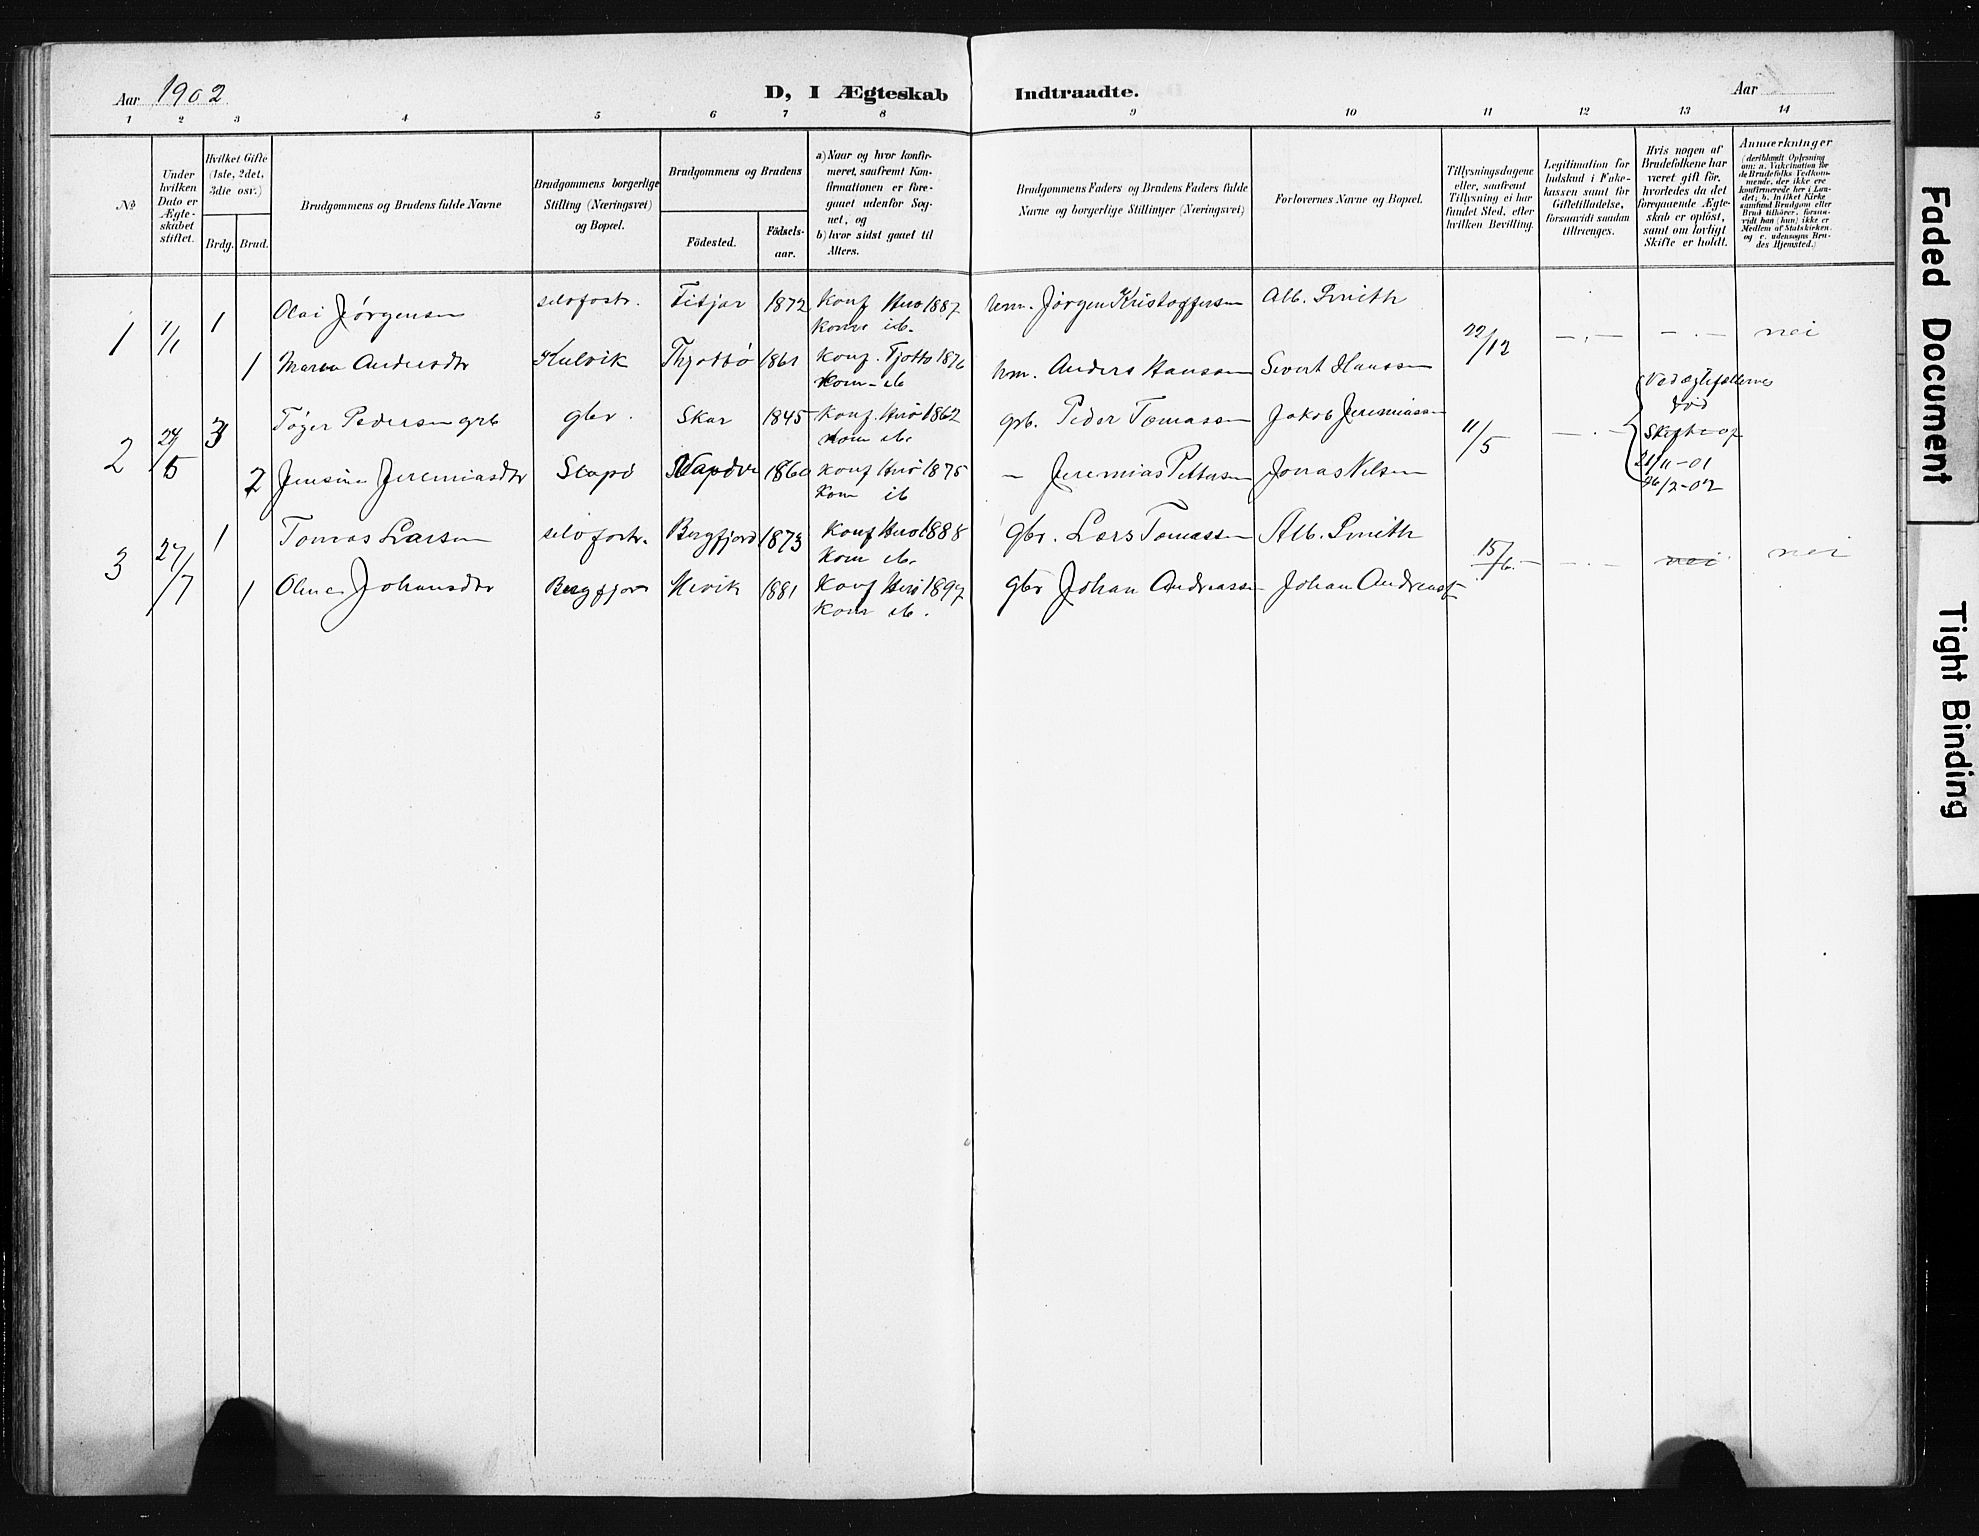 Aar 1902
D, I Ægteskab
Indtraadte.
Aar
1 2 3 4 5 6 7 8 9 10 11 12 13 14
№
Under hvilken Dato er Ægte-skabet stiftet.
Hvilket Gifte (1ste, 2det, 3die osv.)
Brdg. Brud.
Brudgommens og Brudens fulde Navne
Brudgommens borgerlige Stilling (Næringsvei) og Bopæl.
Brudgommens og Brudens
Födested.
Födsels-aar.
a) Naar og hvor konfir-meret, saafremt Kon-firmationen er fore-gaaet udenfor Sog-net, og
b) hvor sidst gaaet til Alters.
Brudgommens Faders og Brudens Faders fulde Navne og borgerlige Stillinger (Næringsvei)
Forlovernes Navne og Bopæl.
Tillysningsdagene eller, saafremt Tillysning ei har fundet Sted, efter hvilken Bevilling.
Legitimation for Indskud i Enke-kassen samt for Giftetilladelse, forsaavidt saadan tiltrænges.
Hvis nogen af Brudefolkene har været gift för, hvorledes da det foregaaende Ægte-skab er oplöst, samt om lovligt Skifte er holdt.
Anmærkninger
(deriblandt Oplysning om: a. Vakcination for de Brudefolks Vedkom-mende, der ikke ere konfirmerede her i Lan-det; b. hvilket Kirke-samfund Brudgom eller Brud tilhörer, forsaa-vidt han (hun) ikke er Medlem af Statskirken, og c. udensogns Bru-des Hjemsted.)
1 1/1 1 Olai Jørgensen selvfostr. Titjar 1872 Konf Herø 1887 Jørgen Kristoffersen Alb. Smith 22/12 nei
Kom ib.
1 Andersdtr Kulvik Thjøttø 1861 Konf. Tjøtto 1876 Anders Hansen Sivert Hansen
Kom - ib
2 24/5 3 Tøger Pedersen grb gbr. Skar 1845 Konf. Herø 1862 grb. Peder Tomassen Jakob Jeremiassen 11/5 død
Kom ib.
2 Jensine Jeremiasdtr Stapø 1860 Konf Herø 1875 - Jeremias Pettersen Jonas Nilsen 21/11-01
Kom ib 26/2-02
3 27/7 1 Tomas Larsen selvfostr. Bergfjord 1873 Konf Herø 1888 gbr. Lars Tomassen Alb. Smith 15/6 nei nei
Kom ib.
1 Oline Johansdtr Bergfjord Hevik 1881 Konf Herø 1897 gbr Johan Andreassen Johan Andreass
Kom ib.
Faded Document
Tight Binding